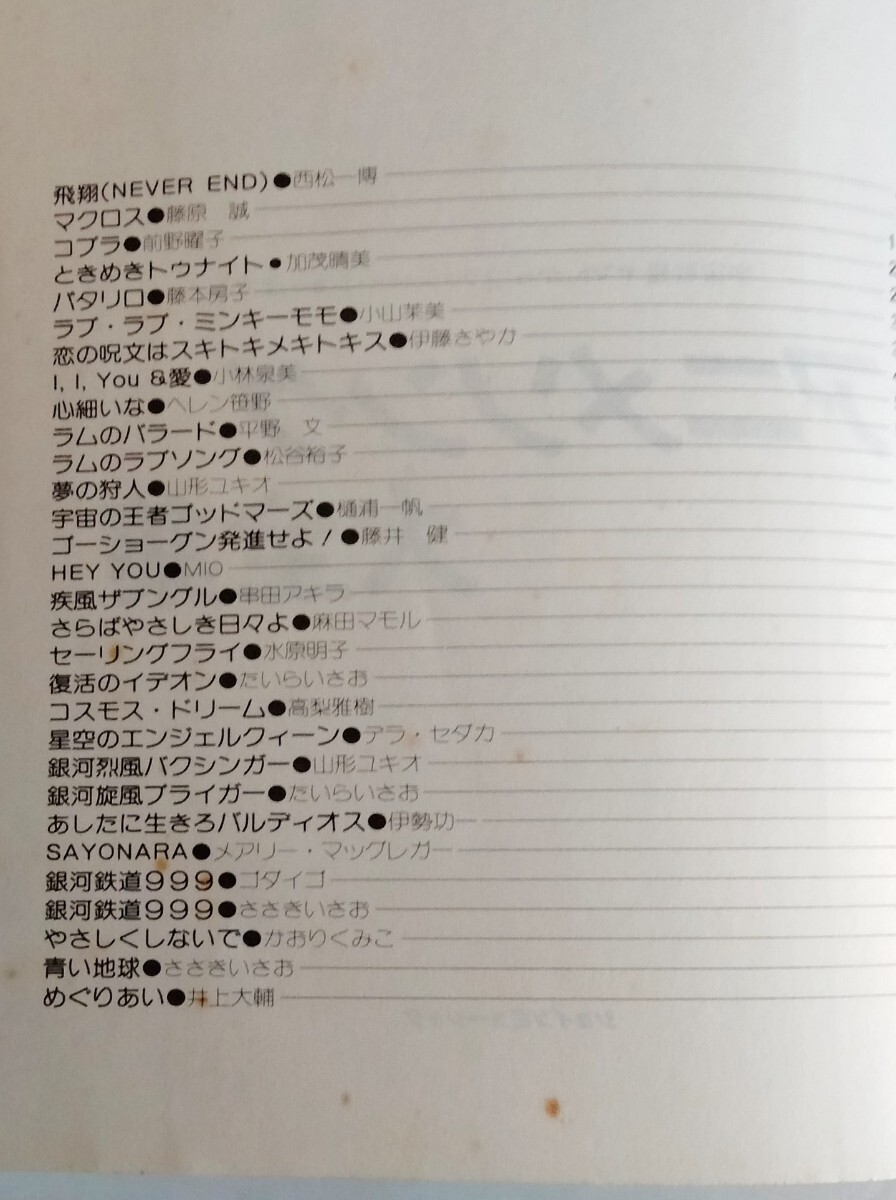 飛翔(NEVER END)●西松一博
マクロス●藤原　誠
コブラ●前野曜子
ときめきトゥナイト●加茂晴美
パタリロ●藤本房子
ラブ・ラブ・ミンキーモモ●小山茉美
恋の呪文はスキトキメキトキス●伊藤さやか
I, I, You &愛●小林泉美
心細いな●ヘレン笹野
ラムのバラード●平野　文
ラムのラブソング●松谷裕子
夢の狩人●山形ユキオ
宇宙の王者ゴッドマーズ●樋浦一帆
ゴーショーグン発進せよ！●藤井　健
HEY YOU●MIO
疾風ザブングル●串田アキラ
さらばやさしき日々よ●麻田マモル
セーリングフライ●水原明子
復活のイデオン●たいらいさお
コスモス・ドリーム●高梨雅樹
星空のエンジェルクィーン●デラ・セダカ
銀河烈風バクシンガー●山形ユキオ
銀河旋風ブライガー●たいらいさお
あしたに生きろバルディオス●伊勢功一
SAYONARA●メアリー・マッグレガー
銀河鉄道999●ゴダイゴ
銀河鉄道999●ささきいさお
やさしくしないで●かおりくみこ
青い地球●ささきいさお
めぐりあい●井上大輔